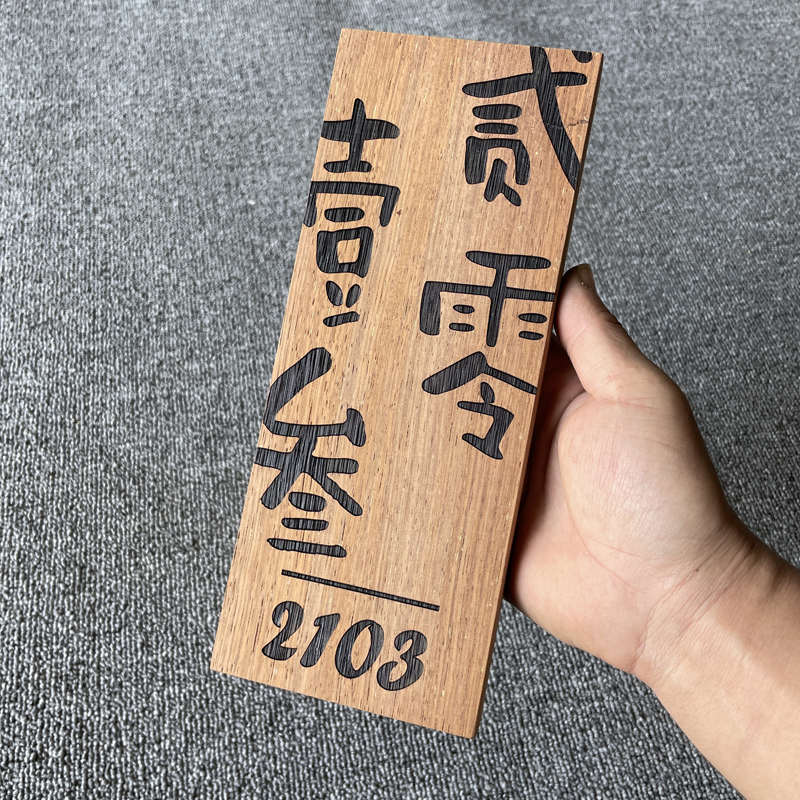 贰壹
零叁
2103